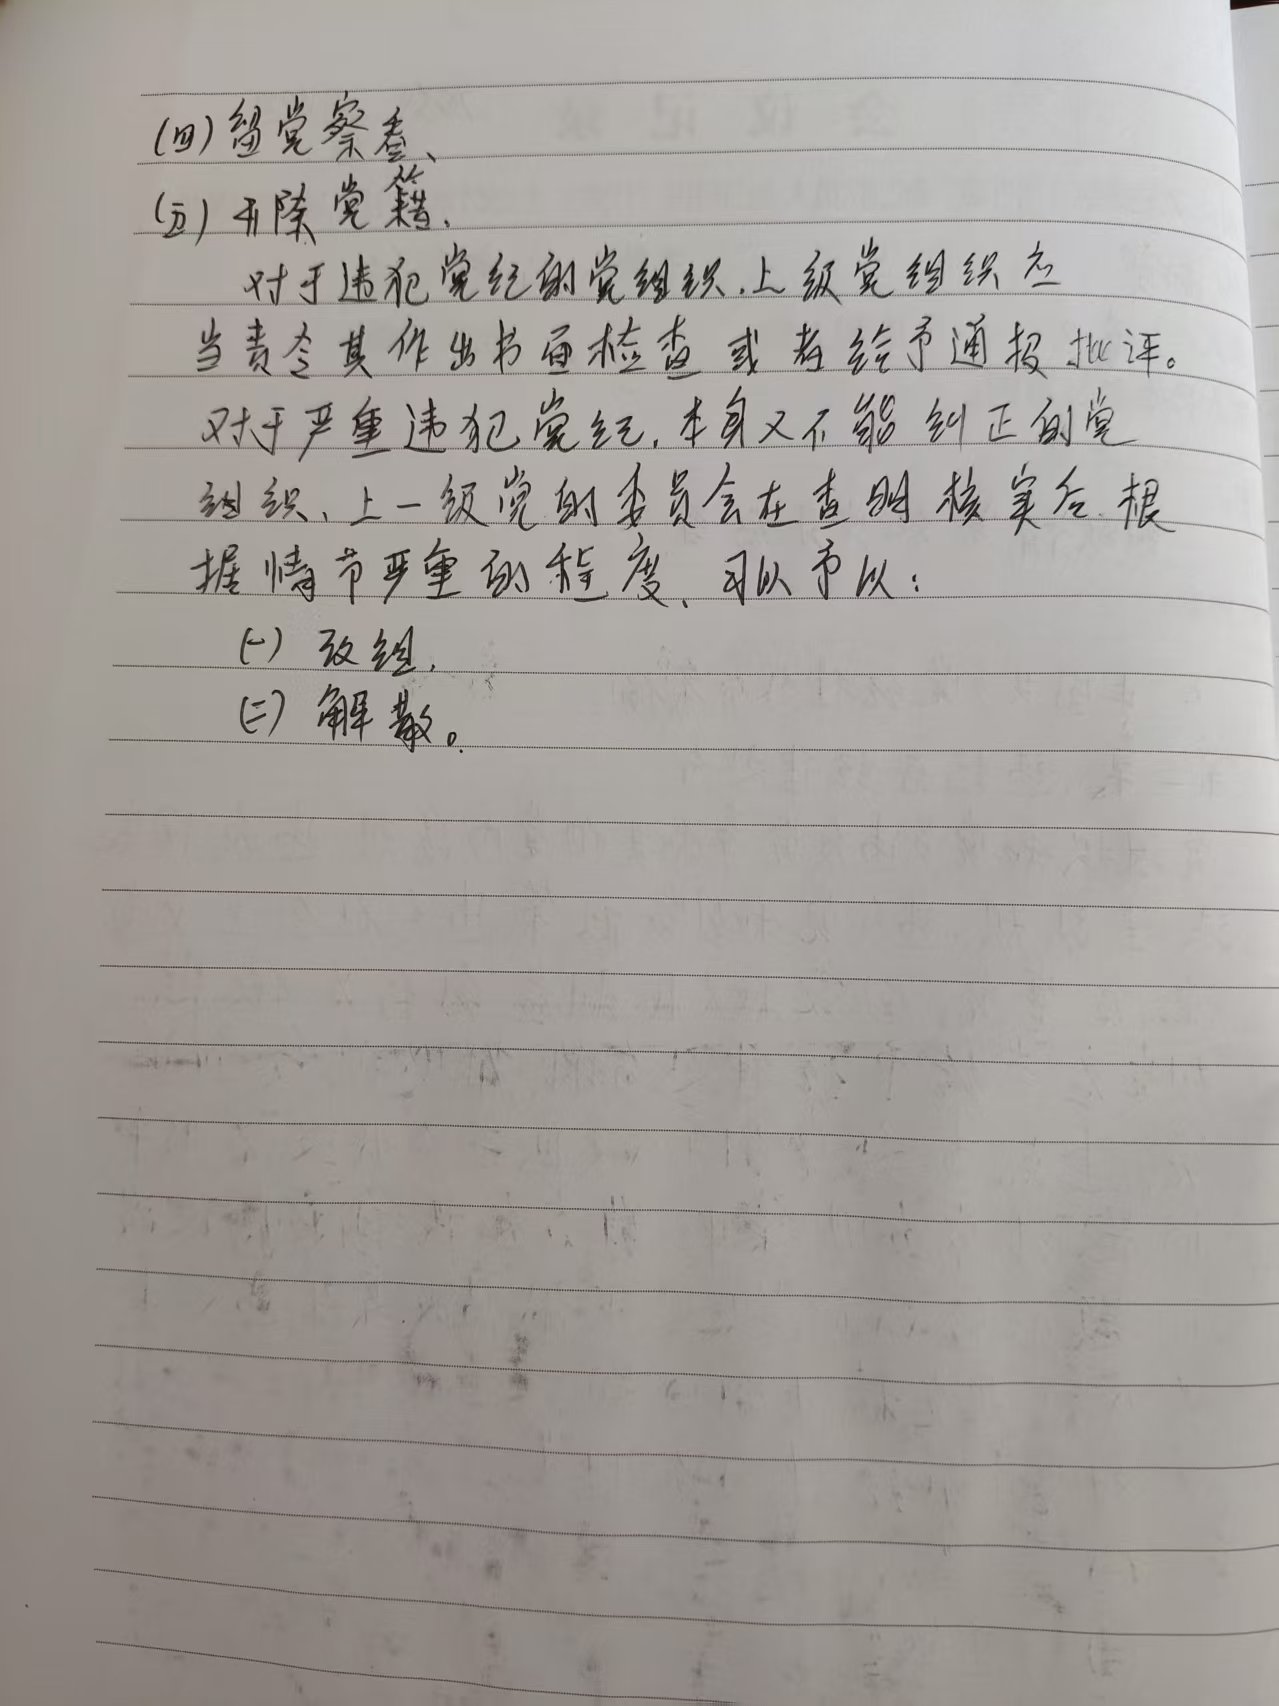 (四)留党察看、
(五)开除党籍.
对于违犯党纪的党组织.上级党组织应
当责令其作出书面检查或者给予通报批评。
对于严重违犯党纪.本身又不能纠正的党
组织、上一级党的委员会在查明核实后.根
据情节严重的程度、可以予以:
(一)改组.
(二)解散。